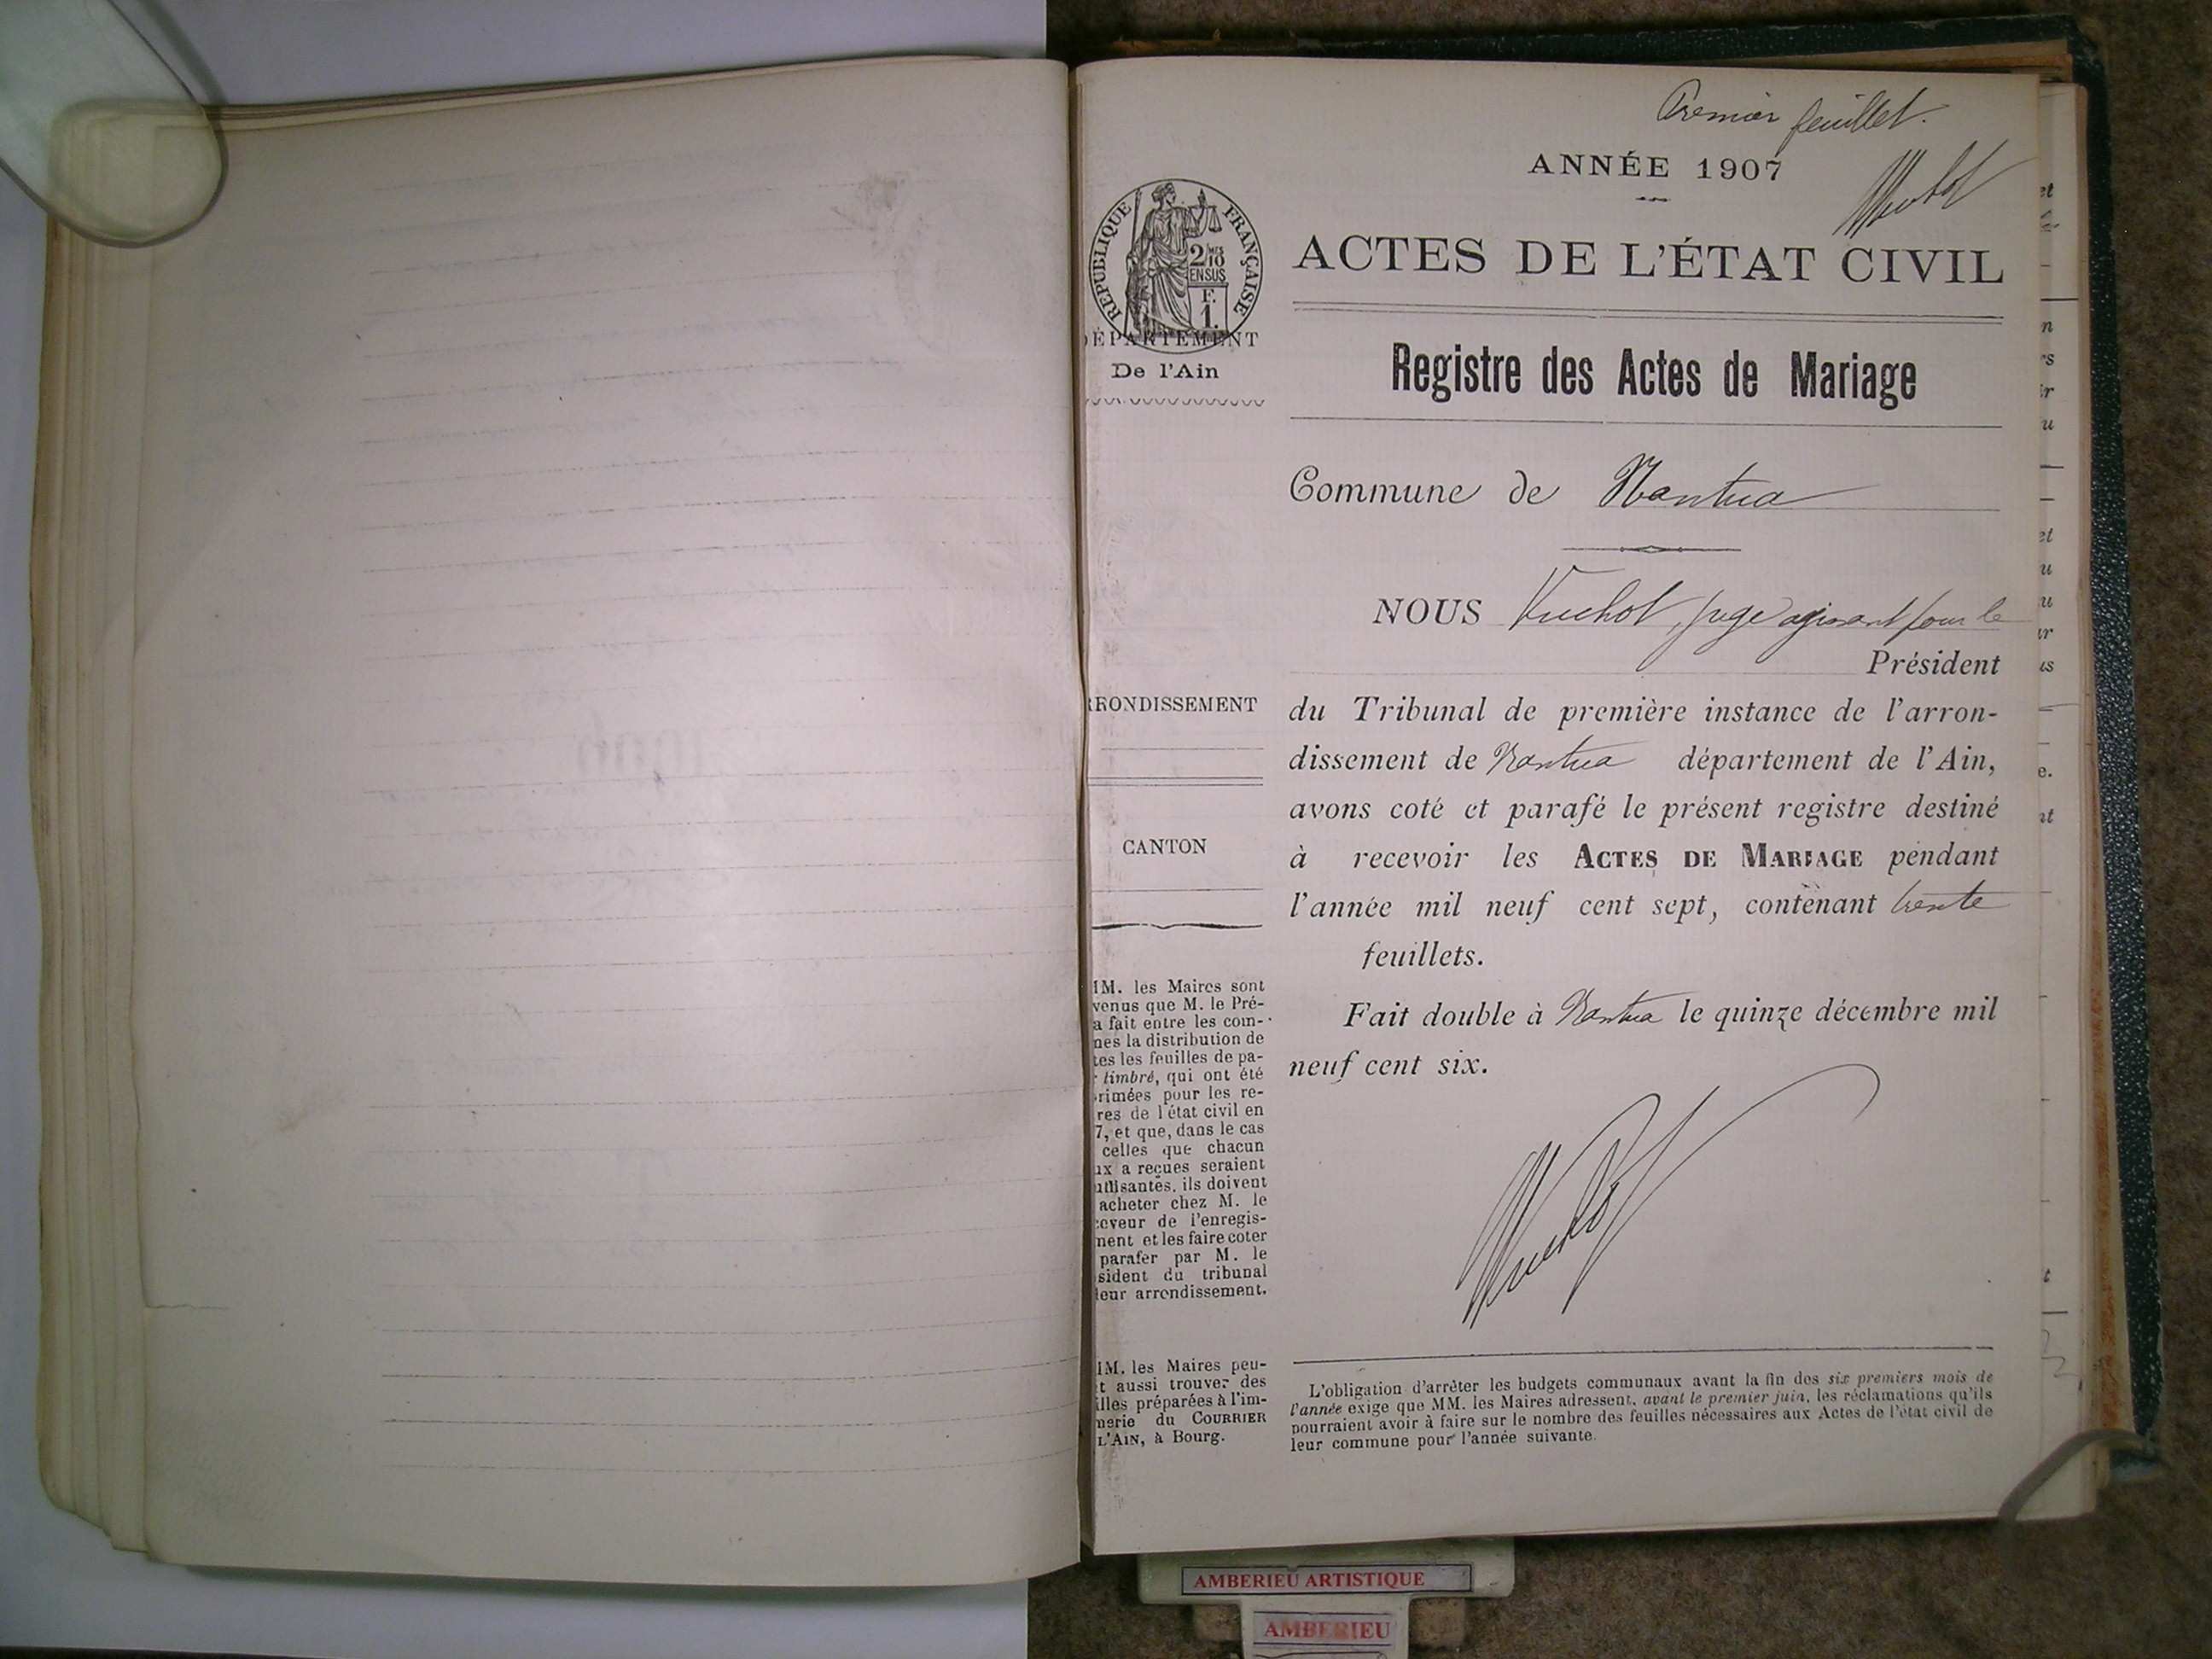 Premier feuillet.
ANNÉE 1907
ACTES DE L'ÉTAT CIVIL
RÉPUBLIQUE FRANÇAISE
2/10
EN SUS
F.
1.
DÉPARTEMENT
De l'Ain
Registre des Actes de Mariage
Commune de Nantua
NOUS Vuchot, juge agissant pour le
Président
du Tribunal de première instance de l'arron-
dissement de Nantua département de l'Ain,
avons coté et parafé le présent registre destiné
à recevoir les ACTES DE MARIAGE pendant
l'année mil neuf cent sept, contenant trente
feuillets.
Fait double à Nantua le quinze décembre mil
neuf cent six.
RRONDISSEMENT
CANTON
MM. les Maires sont
venus que M. le Pré-
a fait entre les com-
nes la distribution de
tes les feuilles de pa-
r timbré, qui ont été
rimées pour les re-
res de l'état civil en
7, et que, dans le cas
celles que chacun
ux a reçues seraient
uffisantes, ils doivent
acheter chez M. le
ceveur de l'enregis-
ment et les faire coter
parafer par M. le
sident du tribunal
leur arrondissement.
MM. les Maires peu-
t aussi trouver des
illes préparées à l'im-
merie du COURRIER
L'AIN, à Bourg.
L'obligation d'arrêter les budgets communaux avant la fin des six premiers mois de
l'année exige que MM. les Maires adressent, avant le premier juin, les réclamations qu'ils
pourraient avoir à faire sur le nombre des feuilles nécessaires aux Actes de l'état civil de
leur commune pour l'année suivante.
AMBERIEU ARTISTIQUE
AMBERIEU